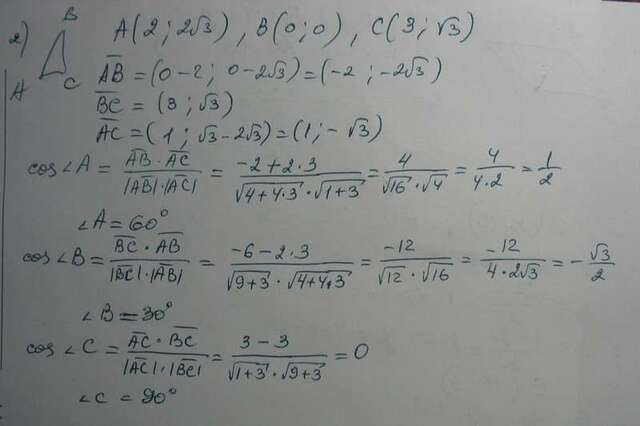 2) B A C A(2; 2√3), B(0; 0), C(3; √3)
AB = (0-2; 0-2√3) = (-2; -2√3)
BC = (3; √3)
AC = (1; √3-2√3) = (1; -√3)
cos∠A = AB · AC / |AB|·|AC| = -2+2·3 / √4+4·3 · √1+3 = 4 / √16 · √4 = 4 / 4·2 = 1/2
∠A = 60°
cos∠B = BC · AB / |BC|·|AB| = -6-2·3 / √9+3 · √4+4·3 = -12 / √12 · √16 = -12 / 4·2√3 = -√3/2
∠B = 30°
cos∠C = AC · BC / |AC|·|BC| = 3-3 / √1+3 · √9+3 = 0
∠C = 90°